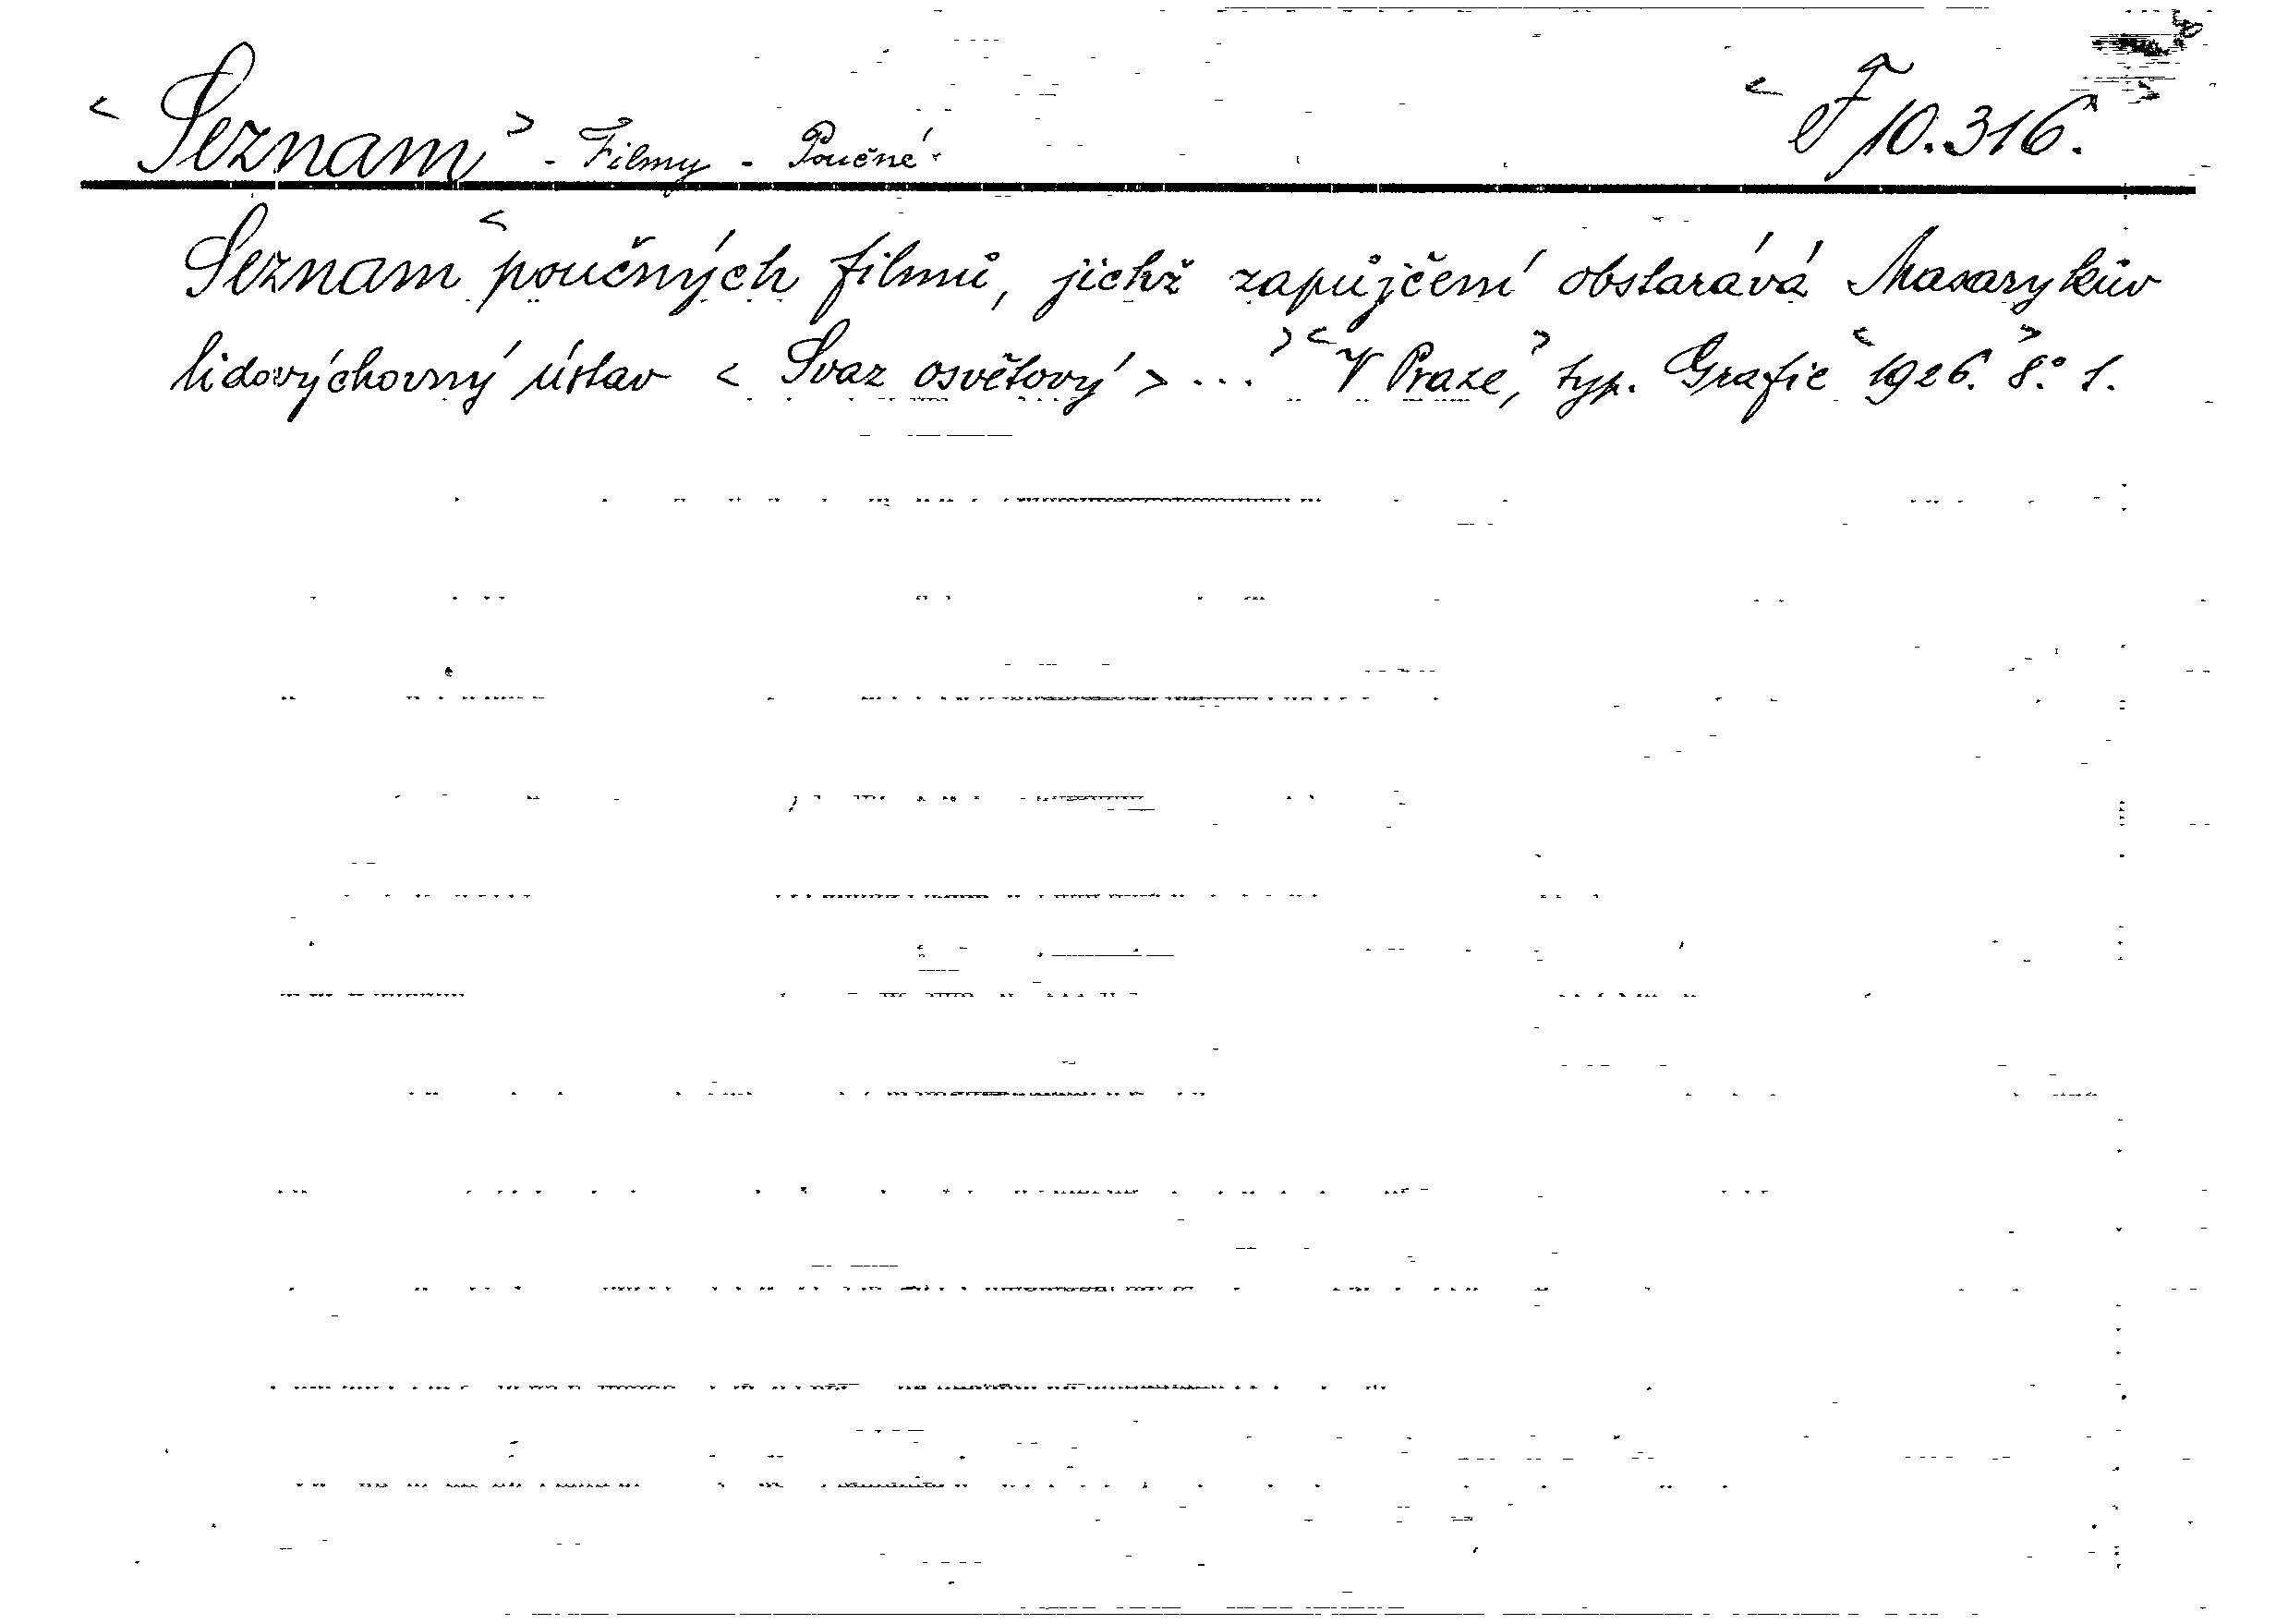 <Seznam> - Filmy - Poučné. <F 10.316.>
Seznam <poučných filmů, jichž zapůjčení obstarává Masarykův
lidovýchovný ústav <Svaz osvětový> ... > <V Praze,> typ. Grafie <1926.> 8.° 1.